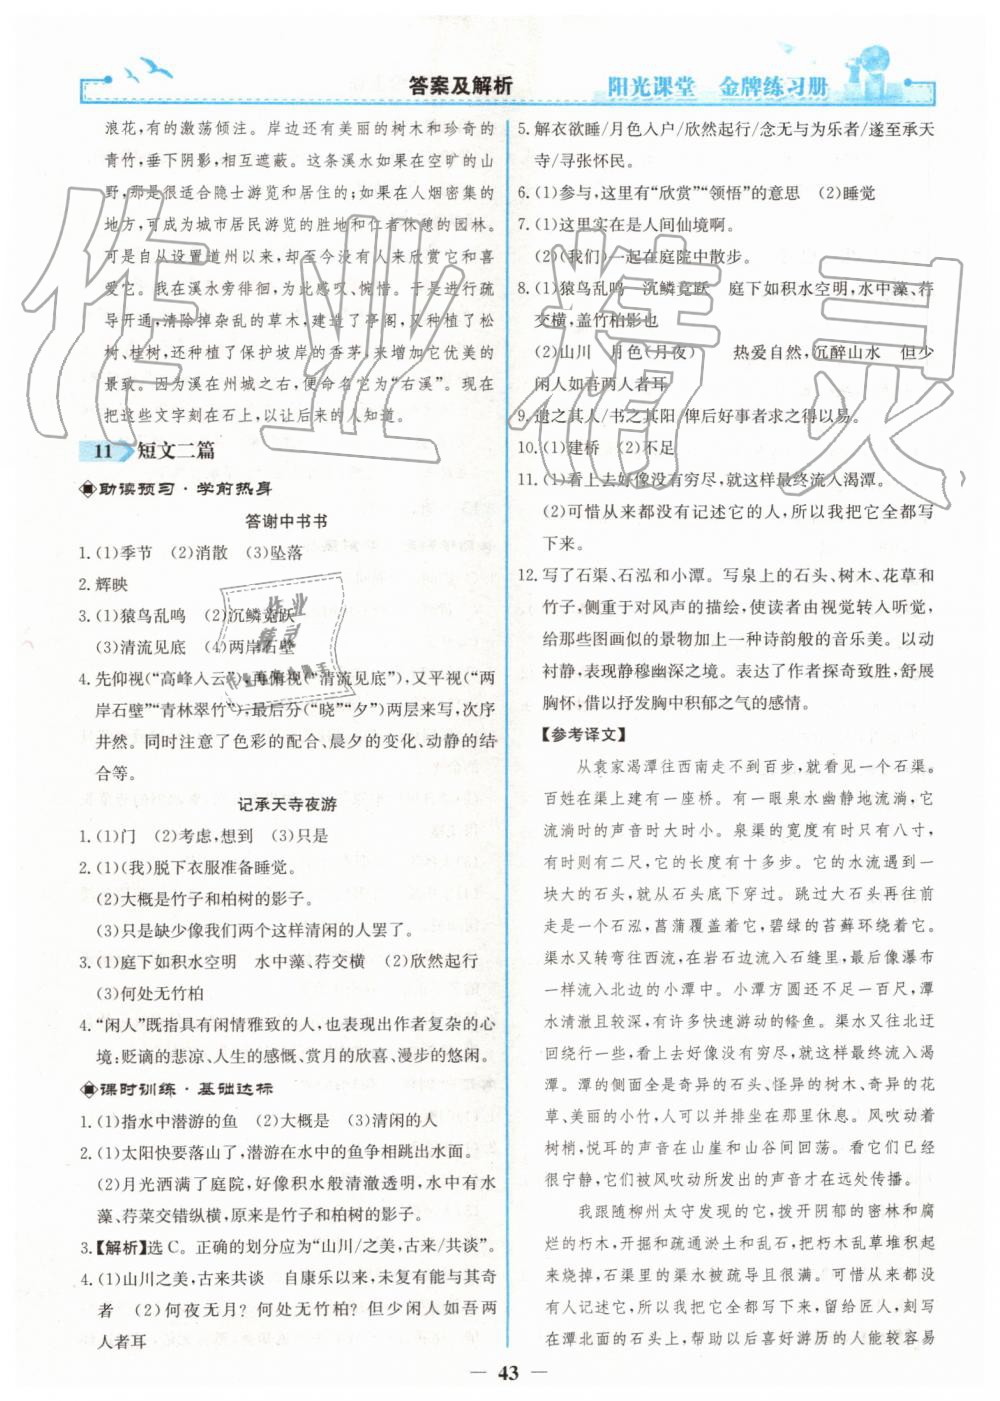 答案及解析
阳光课堂 金牌练习册
浪花,有的激荡倾注。岸边还有美丽的树木和珍奇的
青竹,垂下阴影,相互遮蔽。这条溪水如果在空旷的山
野,那是很适合隐士游览和居住的;如果在人烟密集的
地方,可成为城市居民游览的胜地和仁者休憩的园林。
可是自从设置道州以来,却至今没有人来欣赏它和喜
爱它。我在溪水旁徘徊,为此感叹、惋惜。于是进行疏
导开通,清除掉杂乱的草木,建造了亭阁,又种植了松
树、桂树,还种植了保护坡岸的香茅,来增加它优美的
景致。因为溪在州城之右,便命名它为“右溪”。现在
把这些文字刻在石上,以让后来的人知道。
11 短文二篇
助读预习·学前热身
答谢中书书
1. (1)季节 (2)消散 (3)坠落
2. 辉映
3. (1)猿鸟乱鸣 (2)沉鳞竞跃
(3)清流见底 (4)两岸石壁
4. 先仰视(“高峰入云”),再俯视(“清流见底”),又平视(“两
岸石壁”“青林翠竹”),最后分(“晓”“夕”)两层来写,次序
井然。同时注意了色彩的配合、晨夕的变化、动静的结
合等。
记承天寺夜游
1. (1)门 (2)考虑,想到 (3)只是
2. (1)(我)脱下衣服准备睡觉。
(2)大概是竹子和柏树的影子。
(3)只是缺少像我们两个这样清闲的人罢了。
3. (1)庭下如积水空明 水中藻、荇交横 (2)欣然起行
(3)何处无竹柏
4. “闲人”既指具有闲情雅致的人,也表现出作者复杂的心
境:贬谪的悲凉、人生的感慨、赏月的欣喜、漫步的悠闲。
课时训练·基础达标
1. (1)指水中潜游的鱼 (2)大概是 (3)清闲的人
2. (1)太阳快要落山了,潜游在水中的鱼争相跳出水面。
(2)月光洒满了庭院,好像积水般清澈透明,水中有水
藻、荇菜交错纵横,原来是竹子和柏树的影子。
3. 【解析】选C。正确的划分应为“山川/之美,古来/共谈”。
4. (1)山川之美,古来共谈 自康乐以来,未复有能与其奇
者 (2)何夜无月?何处无竹柏?但少闲人如吾两
人者耳
5. 解衣欲睡/月色入户/欣然起行/念无与为乐者/遂至承天
寺/寻张怀民。
6. (1)参与,这里有“欣赏”“领悟”的意思 (2)睡觉
7. (1)这里实在是人间仙境啊。
(2)(我们)一起在庭院中散步。
8. (1)猿鸟乱鸣 沉鳞竞跃 庭下如积水空明,水中藻、荇
交横,盖竹柏影也
(2)山川 月色(月夜) 热爱自然,沉醉山水 但少
闲人如吾两人者耳
9. 遗之其人/书之其阳/俾后好事者求之得以易。
10. (1)建桥 (2)不足
11. (1)看上去好像没有穷尽,就这样最终流入渴潭。
(2)可惜从来都没有记述它的人,所以我把它全部写
下来。
12. 写了石渠、石泓和小潭。写泉上的石头、树木、花草和
竹子,侧重于对风声的描绘,使读者由视觉转入听觉,
给那些图画似的景物加上一种诗韵般的音乐美。以动
衬静,表现静穆幽深之境。表达了作者探奇致胜,舒展
胸怀,借以抒发胸中积郁之气的感情。
【参考译文】
从袁家渴潭往西南走不到百步,就看见一个石渠。
百姓在渠上建有一座桥。有一眼泉水幽静地流淌,它
流淌时的声音时大时小。泉渠的宽度有时只有八寸,
有时则有二尺,它的长度有十多步。它的水流遇到一
块大的石头,就从石头底下穿过。跳过大石头再往前
走是一个石泓,菖蒲覆盖着它,碧绿的苔藓环绕着它。
渠水又转弯往西流,在岩石边流入石缝里,最后像瀑布
一样流入北边的小潭中。小潭方圆还不足一百尺,潭
水清澈且较深,有许多快速游动的鯈鱼。渠水又往北迂
回绕行一些,看上去好像没有穷尽,就这样最终流入渴
潭。潭的侧面全是奇异的石头、怪异的树木、奇异的花
草、美丽的小竹,人可以并排坐在那里休息。风吹动着
树梢,悦耳的声音在山崖和山谷间回荡。看它们已经
很宁静,它们被风吹动所发出的声音才在远处传播。
我跟随柳州太守发现的它,拨开阴郁的密林和腐
烂的朽木,开掘和疏通淤土和乱石,把朽木乱草堆积起
来烧掉,石渠里的渠水被疏导且很满。可惜从来都没
有人记述它,所以我把它全部写下来,留给匠人,刻写
在潭北面的石头上,帮助以后喜好游历的人能较容易
43
作业精灵
作业
精灵